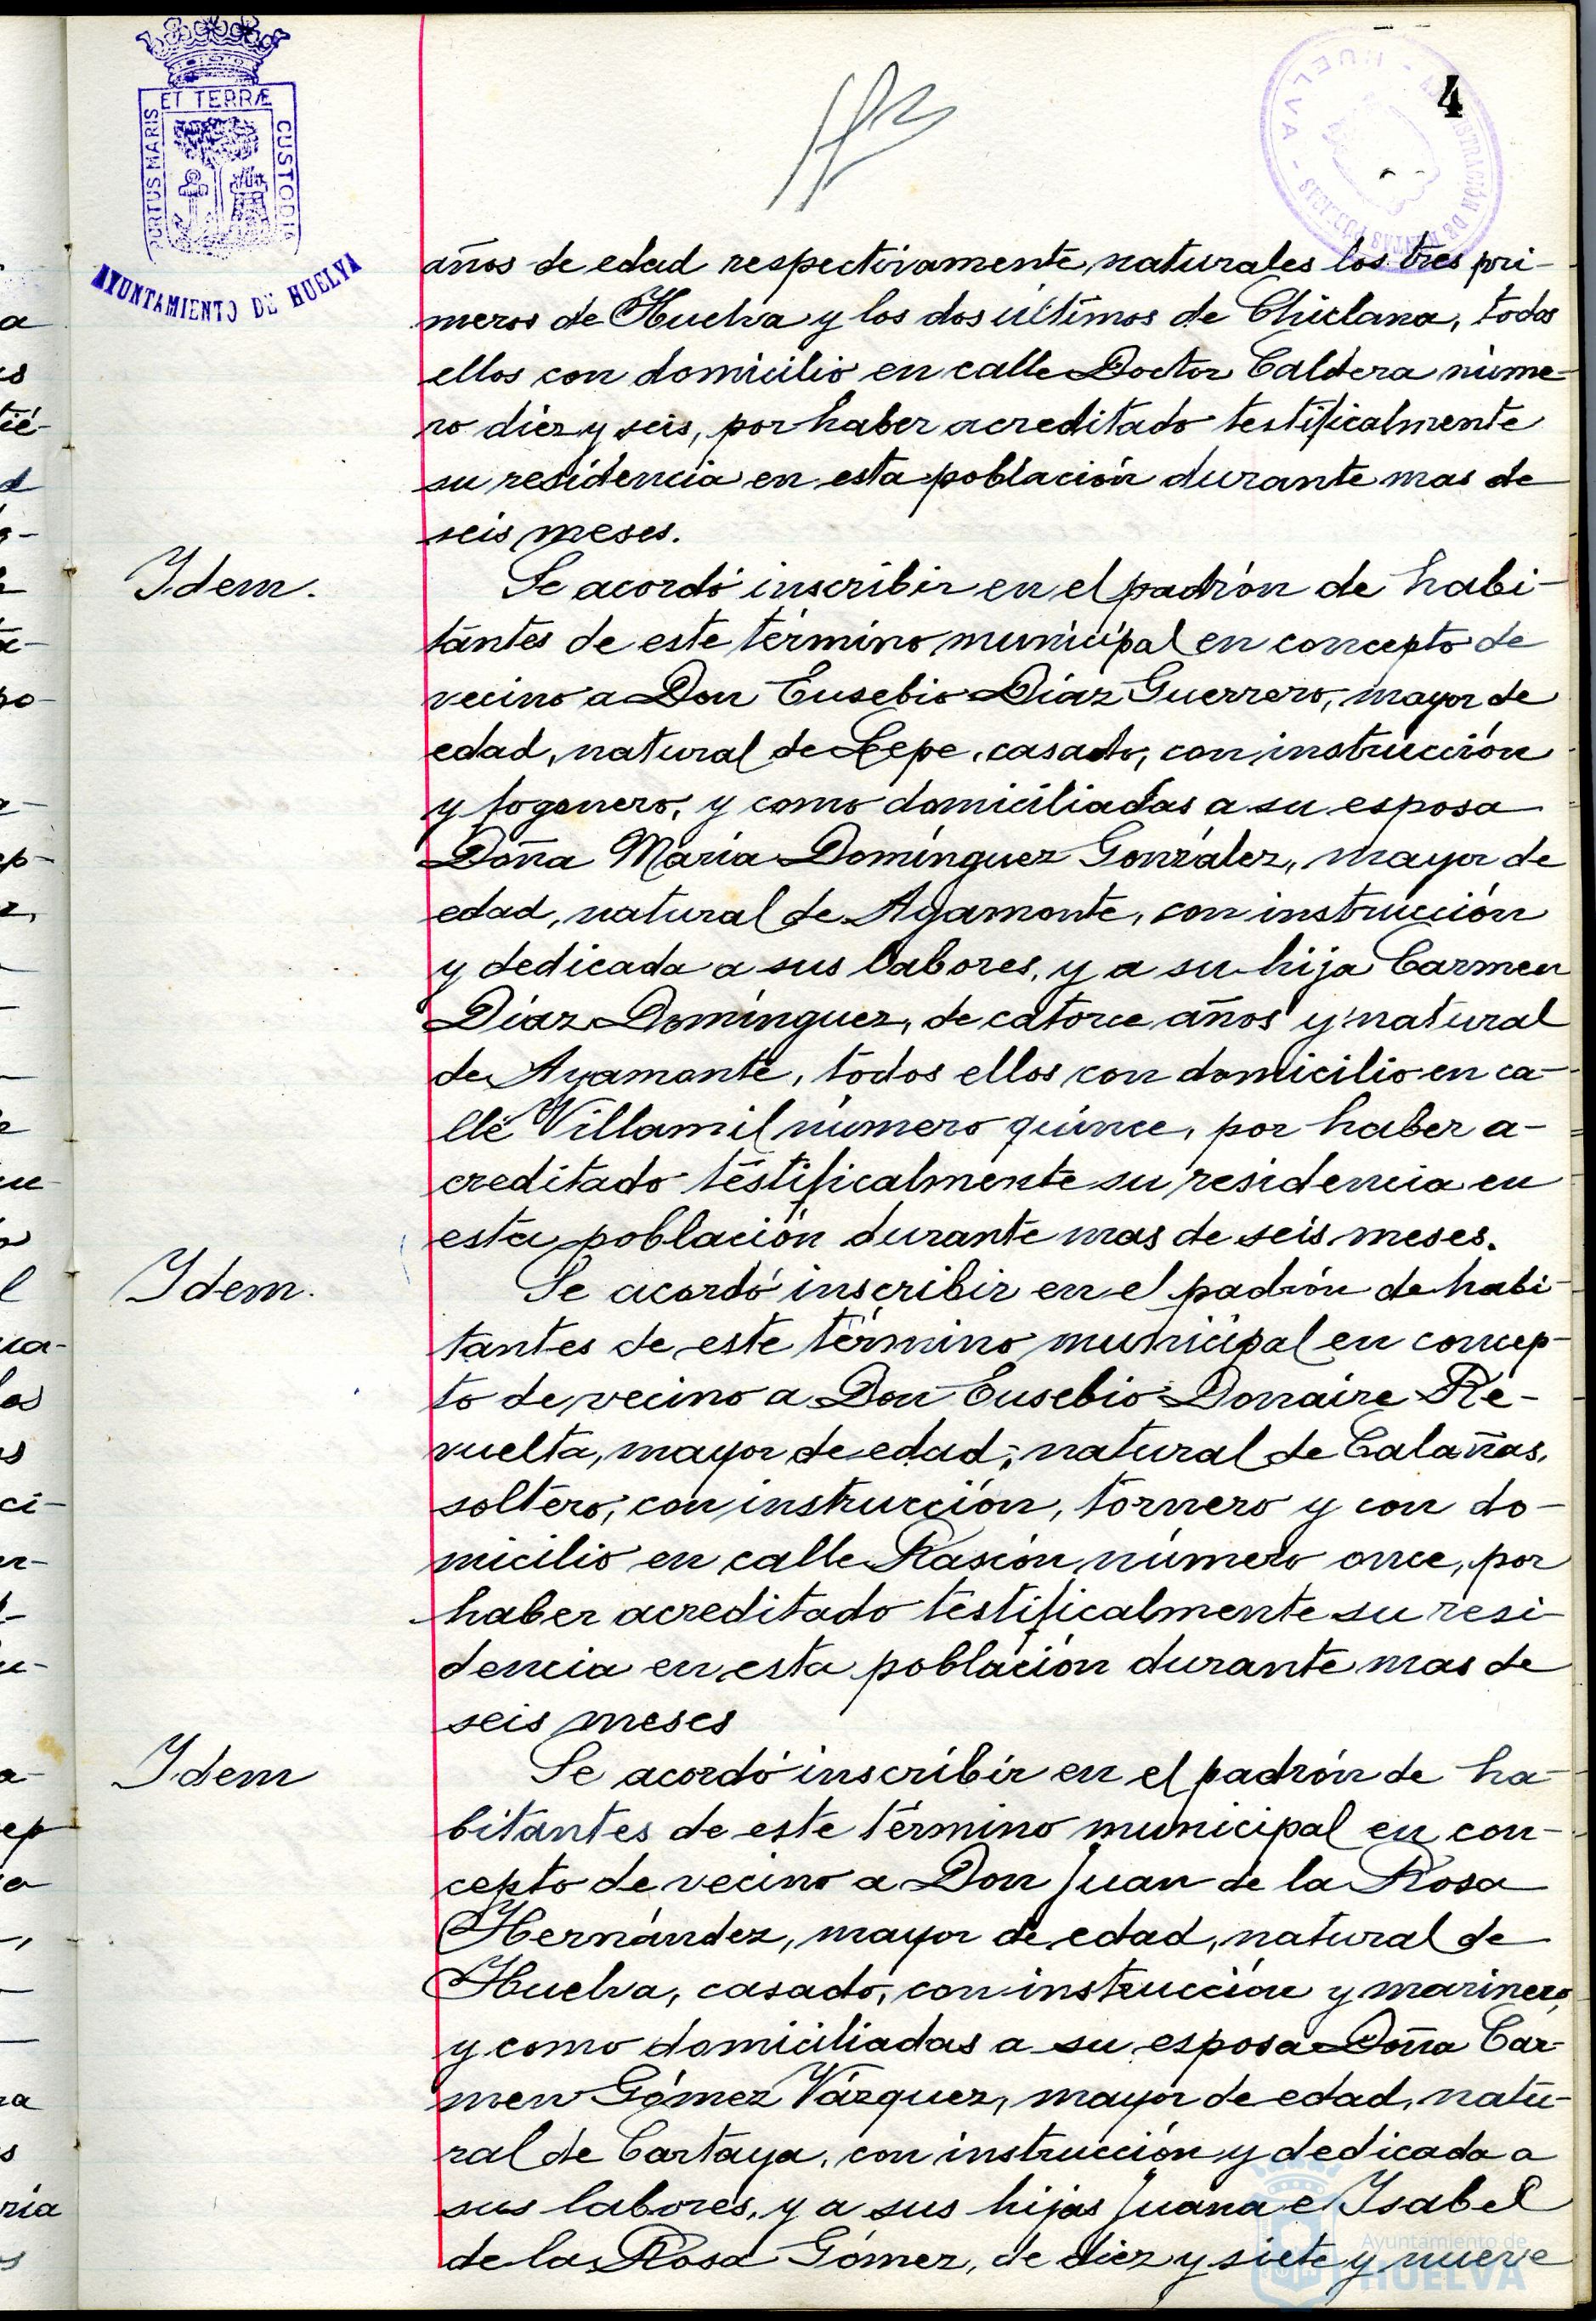 4
ET TERRÆ
PORTUS MARIS
CUSTODIA
AYUNTAMIENTO DE HUELVA
HUELVA
años de edad respectivamente, naturales los tres pri-
meros de Huelva y los dos últimos de Chiclana, todos
ellos con domicilio en calle Doctor Caldera núme-
ro diez y seis, por haber acreditado testificalmente
su residencia en esta población durante mas de
seis meses.
Idem. Se acordó inscribir en el padrón de habi-
tantes de este término municipal en concepto de
vecino a Don Eusebio Díaz Guerrero, mayor de
edad, natural de Lepe, casado, con instrucción
y fogonero, y como domiciliadas a su esposa
Doña María Domínguez González, mayor de
edad, natural de Ayamonte, con instrucción
y dedicada a sus labores, y a su hija Carmen
Díaz Domínguez, de catorce años y natural
de Ayamonte, todos ellos con domicilio en ca-
lle Villamil número quince, por haber a-
creditado testificalmente su residencia en
esta población durante mas de seis meses.
Idem. Se acordó inscribir en el padrón de habi-
tantes de este término municipal en concep-
to de vecino a Don Eusebio Donaire Re-
vuelta, mayor de edad, natural de Calañas,
soltero, con instrucción, tornero y con do-
micilio en calle Rascón número once, por
haber acreditado testificalmente su resi-
dencia en esta población durante mas de
seis meses
Idem Se acordó inscribir en el padrón de ha-
bitantes de este término municipal en con-
cepto de vecino a Don Juan de la Rosa
Hernández, mayor de edad, natural de
Huelva, casado, con instrucción y marinero,
y como domiciliadas a su esposa Doña Car-
men Gómez Vázquez, mayor de edad, natu-
ral de Cartaya, con instrucción y dedicada a
sus labores, y a sus hijas Juana e Isabel
de la Rosa Gómez, de diez y siete y nueve
Ayuntamiento de
HUELVA